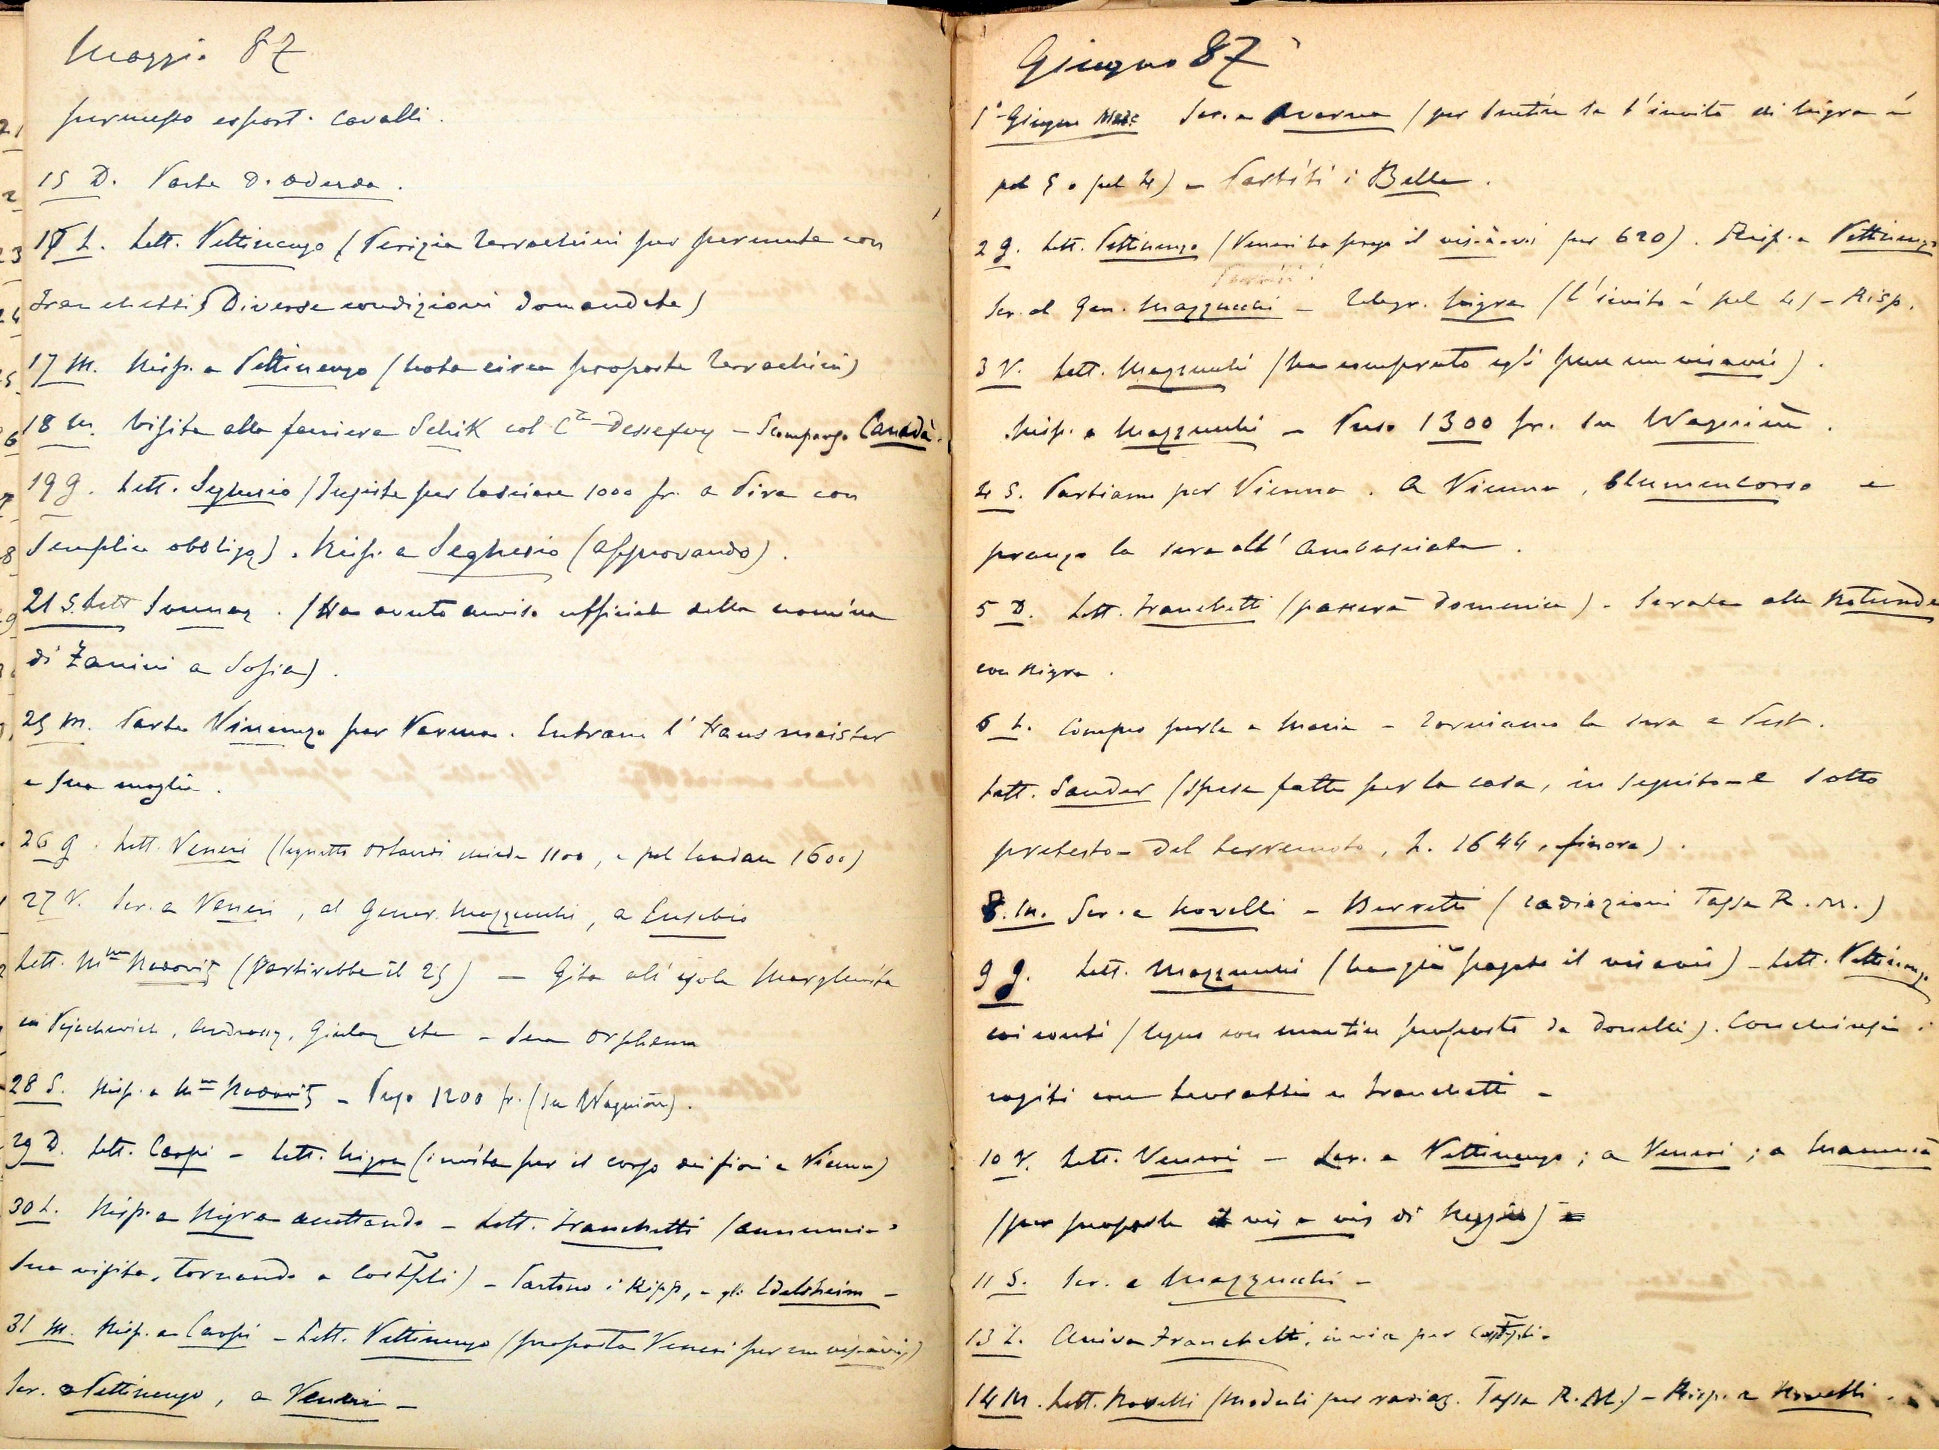 Maggio 87
permesso esport. cavalli.
15 D. Parte D. Oderda.
16 L. Lett. Pettinengo (Perizia Terrachini per permuta con
Franchetti, Diverse condizioni domandate)
17 M. Risp. a Pettinengo (Nota circa proposte Terrachini)
18 M. Visita alla Schik col Cte Dessefwy – Scomparso Canadà.
19 G. Lett. Seghesio / per lasciare 1000 fr. a Piva con
semplice obbligo). Risp. a Seghesio (approvando).
21 S. Lett Sonnaz. (Ha avuto avviso ufficiale della nomina
di Zanini a Sofia).
25 M. Parte Vincenzo per Parma. Entrano l'Hausmeister
e sua moglie.
26 G. Lett. Veneri (legnetto Orlandi chiede 1100, e pel landau 1600)
27 V. Scr. a Veneri, al Gener. Mazzucchi, a Eusebio
Lett. Mme (Partirebbe il 25) – Gita all'isola Margherita
coi Pejachevich, Andrassy, etc – Sera Orpheum
28 S. Risp. a Mme – Pago 1200 fr. (su Wagnion).
29 D. Lett. Carpi – Lett. Nigra (invito per il corso dei fiori a Vienna)
30 L. Risp. a Nigra accettando – Lett. Franchetti (annuncia
sua visita, tornando a Costpli) – Partono i Kipp, e gli Edelsheim –
31 M. Risp. a Carpi – Lett. Pettinengo (proposta Veneri per un visàvis)
Scr. a Pettinengo, a Veneri –
Giugno 87
1° Giugno Merc Scr. a Averna (per sentire se l'invito di Nigra è
pel 5 o pel 4) – Partiti i Belle.
2 G. Lett. Pettinengo (Veneri ha preso il vis-à-vis per 620). Risp. a Pettinengo
Scr. al Gen. Mazzucchi – Telegr. Nigra (l'invito è pel 4) – Risp.
3 V. Lett. Mazzucchi (ha comprato egli pure un visavis).
Risp. a Mazzucchi – Preso 1300 fr. su Wagnion.
4 S. Partiamo per Vienna. A Vienna, Blumencorso e
pranzo la sera all'Ambasciata.
5 D. Lett. Franchetti (passerà Domenica) – Serata alla Rotunde
con Nigra.
6 L. Compro perla a Maria – Torniamo la sera a Pest.
Lett. Sander (spese fatte per la casa, in seguito – e sotto
pretesto – del terremoto, L. 1644, finora).
8. M. Scr. a Novelli – Berretti (radiazioni Tassa R. M.)
9 G. Lett. Mazzucchi (ha già pagato il visavis) – Lett. Pettinengo
coi conti / proposto da Donelli). Conchiusi i
rogiti con e Franchetti –
10 V. Lett. Veneri – Scr. a Pettinengo; a Veneri; a Mammà
(per proposta vis a vis di Reggio) –
11 S. Scr. a Mazzucchi –
13 L. Arriva Franchetti, in via per Costpli.
14 M. Lett. Novelli (moduli per radiaz. Tassa R. M.) – Risp. a Novelli.